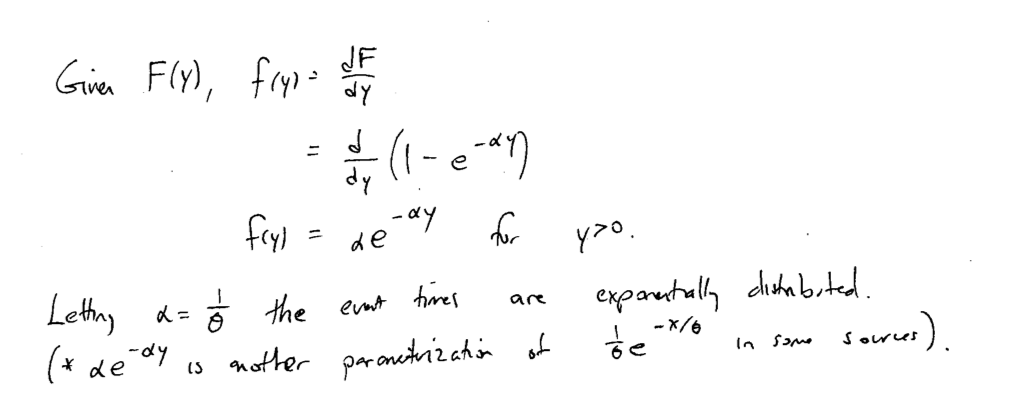 Given F(y), f(y) = dF/dy
= d/dy (1 - e^{-αy})
f(y) = αe^{-αy} for y>0.
Letting α = 1/θ the event times are exponentially distributed.
(* αe^{-αy} is another parametrization of 1/θ e^{-x/θ} in some sources).